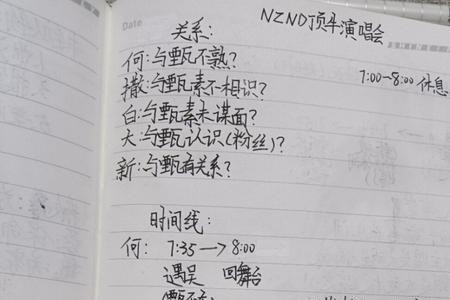 Date
NZND顶伞演唱会
关系:
何:与甄不熟?
7:00-8:00 休息
撒:与甄素不相识?
白:与甄素未谋面?
大:与甄认识(粉丝)?
新:与甄有关系?
时间线:
何: 7:35→8:00
遇吴 回舞台